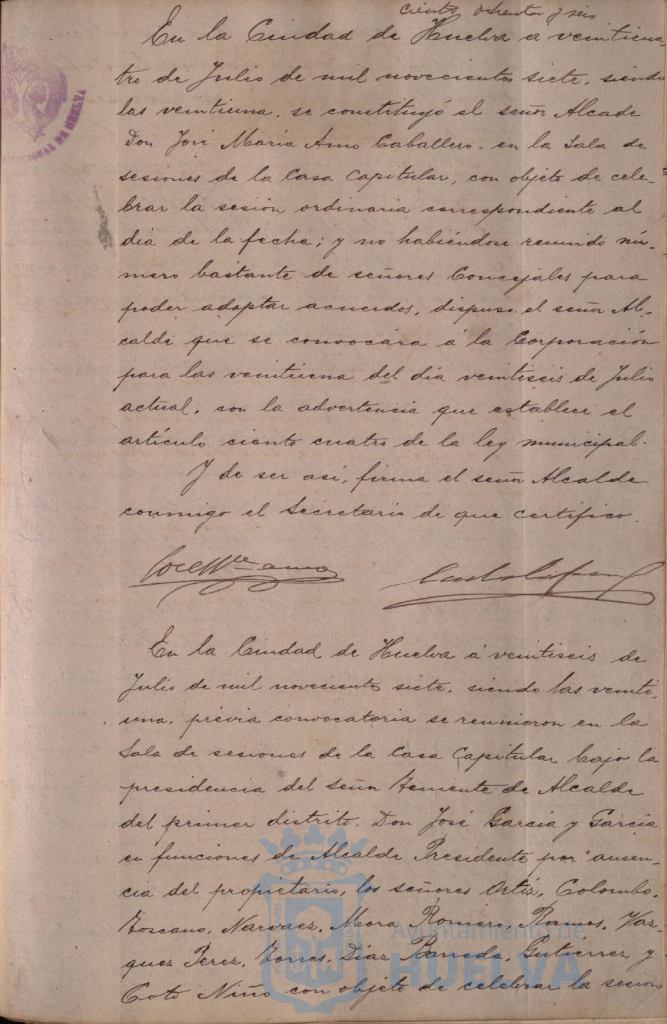 ciento ochenta y seis
En la Ciudad de Huelva a veinticua
tro de Julio de mil novecientos siete, siendo
las veintiuna, se constituyó el señor Alcade
Don José María Amo Caballero, en la Sala de
sesiones de la Casa Capitular, con objeto de cele-
brar la sesión ordinaria correspondiente al
dia de la fecha; y no habiéndose reunido nú-
mero bastante de señores Concejales para
poder adoptar acuerdos, dispuso el señor Al-
calde que se convocára á la Corporación
para las veintiuna del dia veintiseis de Julio
actual, con la advertencia que establece el
artículo ciento cuatro de la ley municipal.
Y de ser así, firma el señor Alcalde
conmigo el Secretario de que certifico.
José Mª Amo
En la Ciudad de Huelva á veintiseis de
Julio de mil novecientos siete, siendo las veinti-
una, prévia convocatoria se reunieron en la
Sala de sesiones de la Casa Capitular bajo la
presidencia del Señor Teniente de Alcalde
del primer distrito, Don José García y García
en funciones de Alcalde Presidente por ausen-
cia del propietario, los señores Ortiz, Colombo,
Toscano, Narvaez, Mora Romero, Ramos, Vaz-
quez Perez, Torres, Diaz Barreda, Gutierrez y
Coto Niño con objeto de celebrar la sesion
Ayuntamiento de
HUELVA